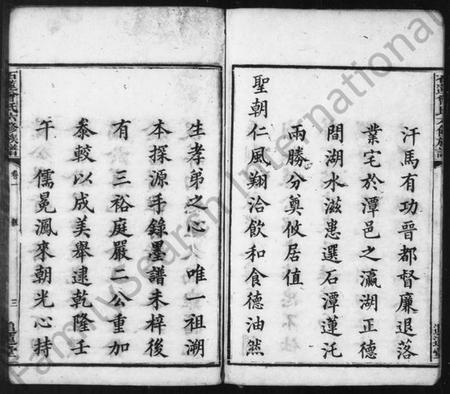 汗馬有功晉都督廉退落
業宅於潭邑之瀛湖正德
間湖水滋患選石潭蓮沱
兩勝分奠攸居值
聖朝仁風翔洽飲和食德油然
生孝弟之心唯一祖溯
本探源手錄墨譜未梓後
有三裕庭嚴二公重加
泰較以成美舉逮乾隆壬
午儒晃渢來朝光心持
卷一
三
FamilySearch International